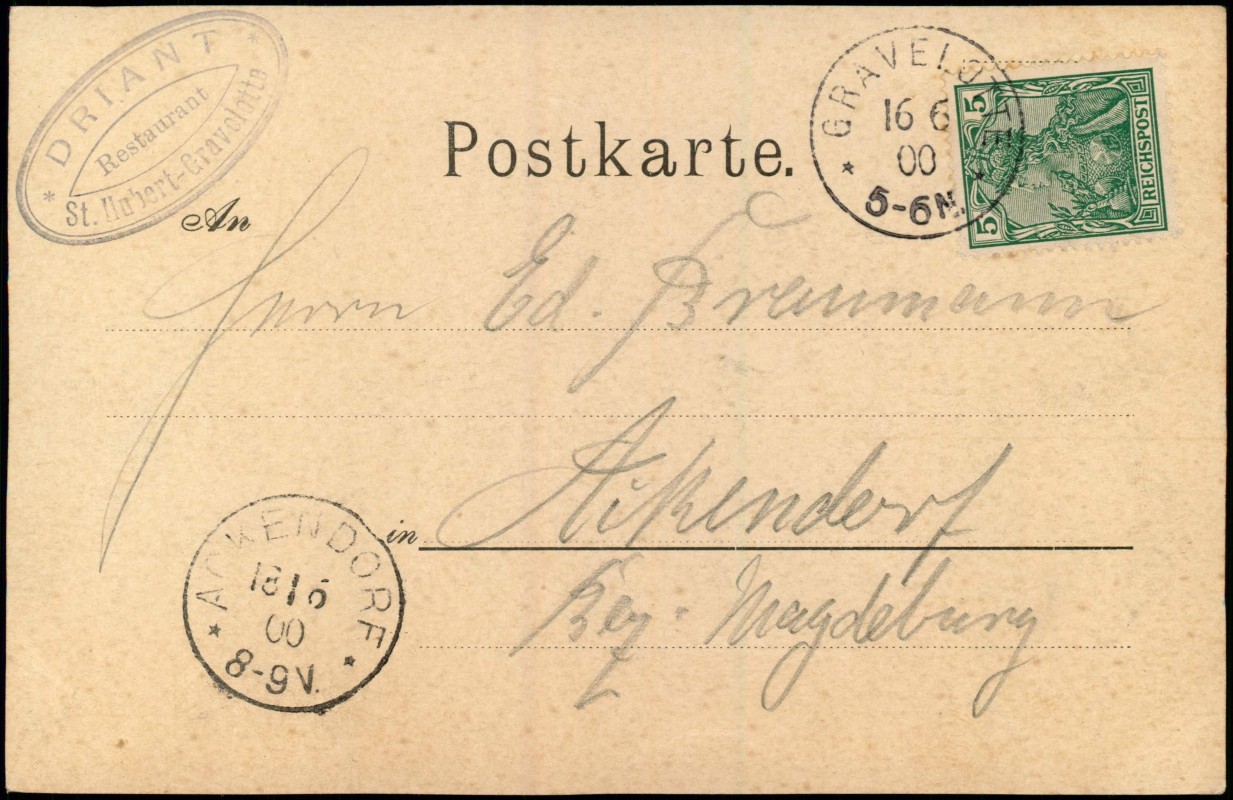 * DRIANT *
Restaurant
St. Hubert-Gravelotte
Postkarte.
GRAVELOTTE
16 6
00
* 5-6N. *
5
5
REICHSPOST
An
Herrn Ed. Braumann
in Ackendorf
Bez. Magdeburg
ACKENDORF
18 6
00
* 8-9V. *